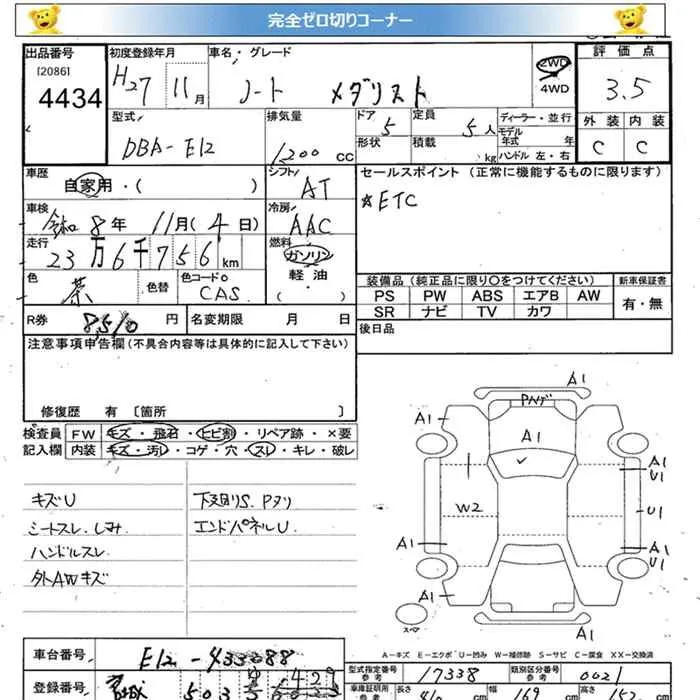 完全ゼロ切りコーナー
出品番号 初度登録年月 車名・グレード 評価点
[2086]
4434 H27 11月 ノート メダリスト 2WD 4WD 3.5
型式 排気量 ドア 5 定員 5人 ディーラー・並行 外装 内装
モデル年式 年
DBA-E12 1200cc 形状 積載 kg ハンドル 左・右 C C
車歴 シフト セールスポイント (正常に機能するものに限ります)
自家用・( ) AT ☆ETC
車検 冷房
令和8年 11月(4日) AAC
走行 燃料
23万6千756km ガソリン
色 色替 色コードNo 軽油・
茶 CAS ( )
装備品 (純正品に限り○をつけてください) 新車保証書
PS PW ABS エアB AW 有・無
SR ナビ TV カワ
R券 8510円 名変期限 月 日 後日品
注意事項申告欄(不具合内容等は具体的に記入して下さい)
修復歴 有 〔箇所 〕
検査員 FW キズ・飛石・ヒビ割・リペア跡・×要
記入欄 内装 キズ・汚レ・コゲ・穴・スレ・キレ・破レ
キズU 下廻りS.Pヌリ
シートスレ.しみ エンドパネルU.
ハンドルスレ
外AWキズ
A1
Pハゲ
A1 A1
A1
A1 U1
W2 U1
A1 A1
U1
A1
スペア
A-キズ E-エクボ U-凹み W-補修跡 S-サビ C-腐食 XX-交換済
車台番号 E12-433088
型式指定番号 参考 17338 類別区分番号 参考 0021
登録番号 503
車庫証明用 参考 長さ cm 幅 169 cm 高さ 152 cm